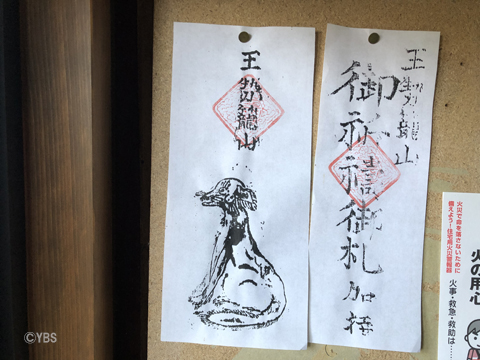 王勢籠山
王勢籠山
御祈禱御札加持
火災で命を落さないために
備えよう!住宅用火災警報器
火の用心
火事・救急・救助は……
©YBS